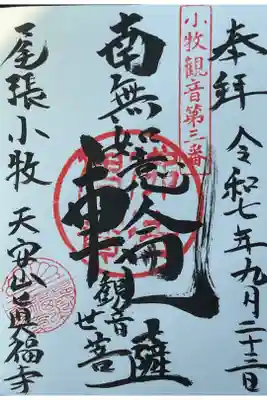 奉拝
令和七年九月二十三日
小牧観音第三番
南無如意輪
観世音菩薩
尾張小牧 天安山真福寺